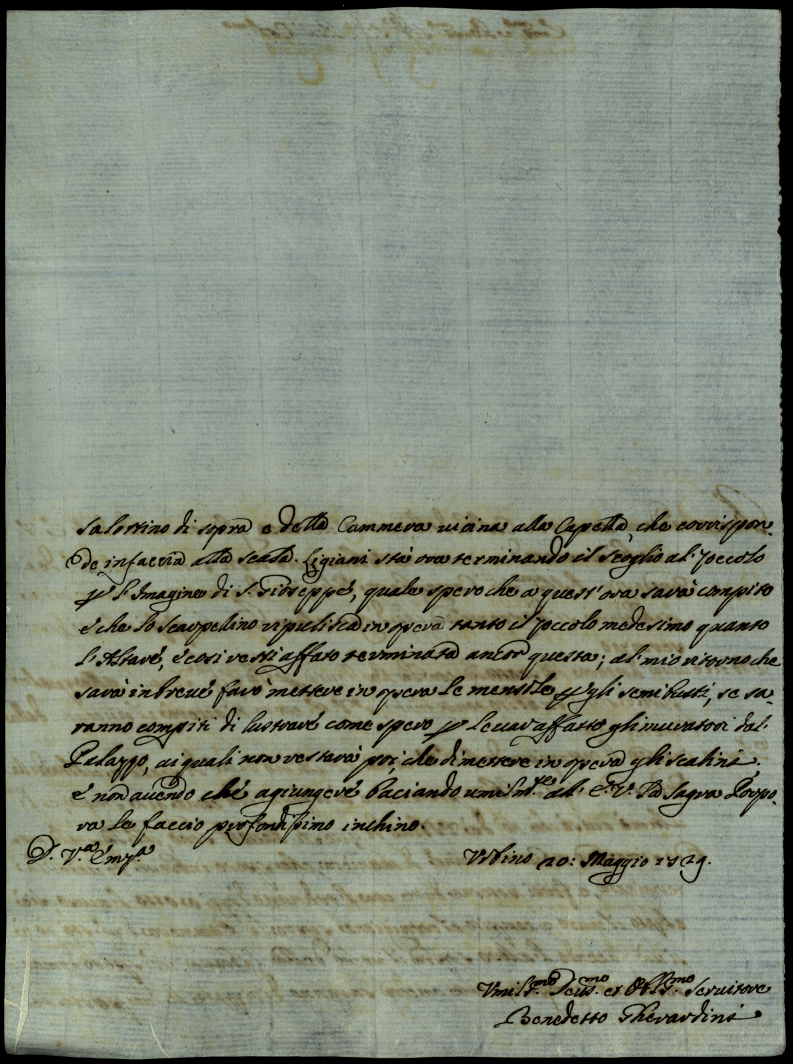 Salottino di sopra e della Cammera vicina alla Capella, che corrispon-
de infaccia alla scala. Ligiani stà ora terminando il scoglio al zoccolo
p l'Imagine di S. Gioseppe, quale spero che a quest'ora sarà compito
e che lo scarpelino ripulisca in opera tanto il zoccolo medesimo quanto
l'Altare, e così resti affato terminata ancor questa; al mio ritorno che
sarà in breve farò mettere in opera le mensole p gli semibusti, se sa-
ranno compiti di lustrare come spero p levar affatto gli muratori dal
Palazzo, ai quali non restarà poi che di mettere in opera gli scalini.
e non avendo che agiungere baciando umilm.te al' E. V. la Sagra Porpo-
ra le faccio profondissimo inchino.
D. V.a Em.za Urbino 20: Maggio 1729.
Umil.mo Dev.mo et Obl.mo Servitore
Benedetto Gherardini